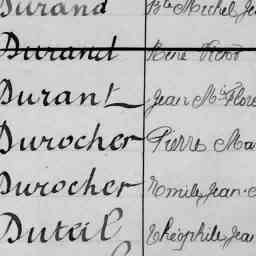 Durand Bte Michel Je
Durand René
Durant Jean Mie Flore
Durocher Pierre Ma
Durocher Emile Jean
Duteil Théophile Jea